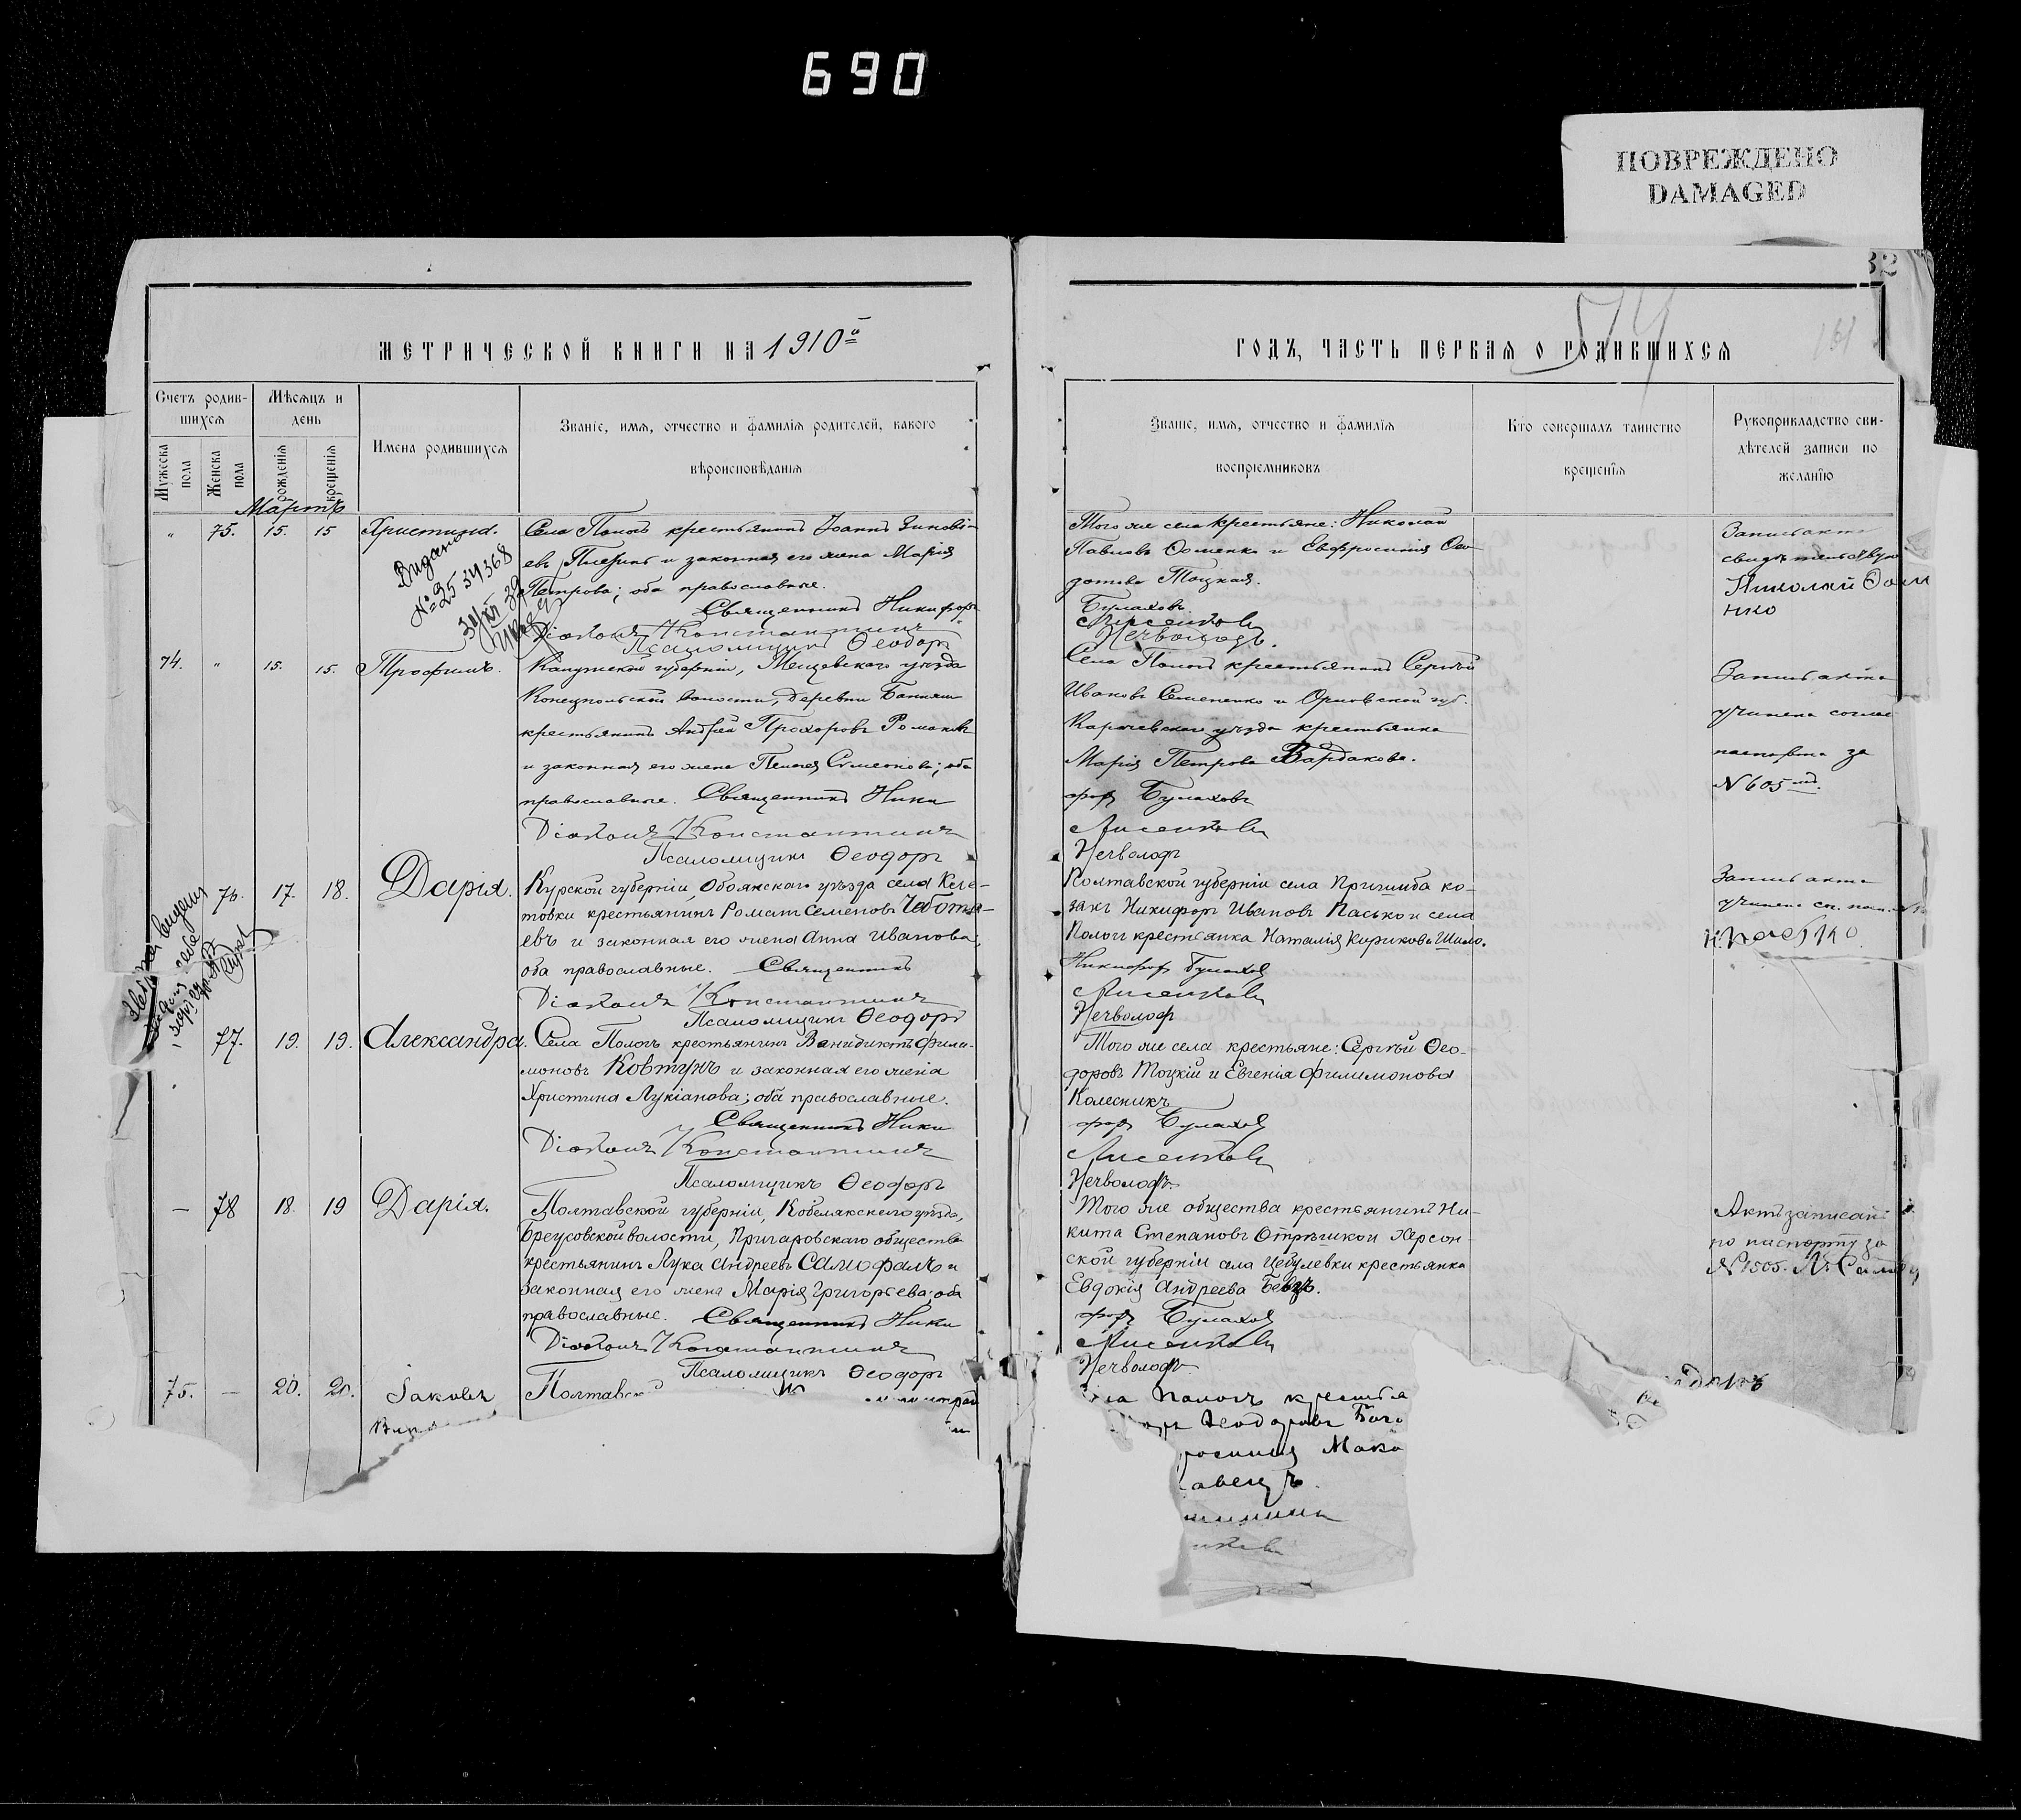 690
ПОВРЕЖДЕНО
DAMAGED
32
574
161
МЕТРИЧЕСКОЙ КНИГИ НА 1910й
ГОДЪ, ЧАСТЬ ПЕРВАЯ О РОДИВШИХСЯ
Счетъ родив-
шихся
Мужеска пола
Женска пола
Мѣсяцъ и
день
рожденія
крещенія
Имена родившихся
Званіе, имя, отчество и фамилія родителей, какого
вѣроисповѣданія
Званіе, имя, отчество и фамилія
воспріемниковъ
Кто совершалъ таинство
крещенія
Рукоприкладство сви-
дѣтелей записи по
желанію
Мартъ
" 75. 15. 15 Христина.
Села Пологъ крестьянинъ Іоаннъ Зиновi-
евъ и законная его жена Марія
Петрова; оба православные.
Священникъ Никифоръ
Діаконъ Константинъ
Псаломщикъ Ѳеодоръ
Того же села крестьяне: Николай
Павловъ и Евфросинія Ѳео-
дотова Тоцкая.
Булаховъ
Лисенковъ
Нечволодъ.
Запись акта
Николай
74. " 15. 15. Трофимъ.
Калужской губерніи, Мещевскаго уѣзда
волости, деревни
крестьянинъ Андрей Прохоровъ Романовъ
и законная его жена Пелагея Симеонова; оба
православные. Священникъ Ники
Діаконъ Константинъ
Псаломщикъ Ѳеодоръ
Села Пологъ крестьянинъ Сергѣй
Ивановъ Семененко и Орловской губ.
Карачевскаго уѣзда крестьянка
Марія Петрова Вардакова.
форъ Булаховъ
Лисенковъ
Нечволодъ
Запись акта
учинена соглас
паспорта за
№ 605
76. 17. 18. Дарія.
Курской губерніи, Обоянскаго уѣзда села
крестьянинъ Романъ Семеновъ Чебота-
евъ и законная его жена Анна Иванова,
оба православные. Священникъ
Діаконъ Константинъ
Псаломщикъ Ѳеодоръ
Полтавской губерніи села Пришиба ко-
закъ Никифоръ Ивановъ Пасько и села
Пологъ крестьянка Наталія Кирикова Шило.
Никифоръ Булаховъ
Лисенковъ
Нечволодъ
Запись акта
учинена
77. 19. 19. Александра.
Села Пологъ крестьянинъ Венидиктъ Фили-
моновъ Ковтунъ и законная его жена
Христина Лукіанова; оба православные.
Священникъ Ники
Діаконъ Константинъ
Псаломщикъ Ѳеодоръ
Того же села крестьяне: Сергѣй Ѳео-
доровъ Тоцкій и Евгенія Филимонова
Колесникъ
форъ Булаховъ
Лисенковъ
Нечволодъ.
— 78 18. 19 Дарія.
Полтавской губерніи, Кобелякскаго уѣзда,
Бреусовской волости, Пригаровскаго общества
крестьянинъ Лука Андреевъ Салифалъ и
законная его жена Марія Григорьева; оба
православные. Священникъ Ники
Діаконъ Константинъ
Псаломщикъ Ѳеодоръ
Того же общества крестьянинъ Ни-
кита Степановъ Отрѣшко и Херсон-
ской губерніи села Цебулевки крестьянка
Евдокія Андреева Бевзъ.
форъ Булаховъ
Лисенковъ
Нечволодъ
Актъ записанъ
по паспорту за
№ 1505.
75. — 20. 20. Іаковъ
Полтавск
Пологъ крестья
Ѳеодоровъ